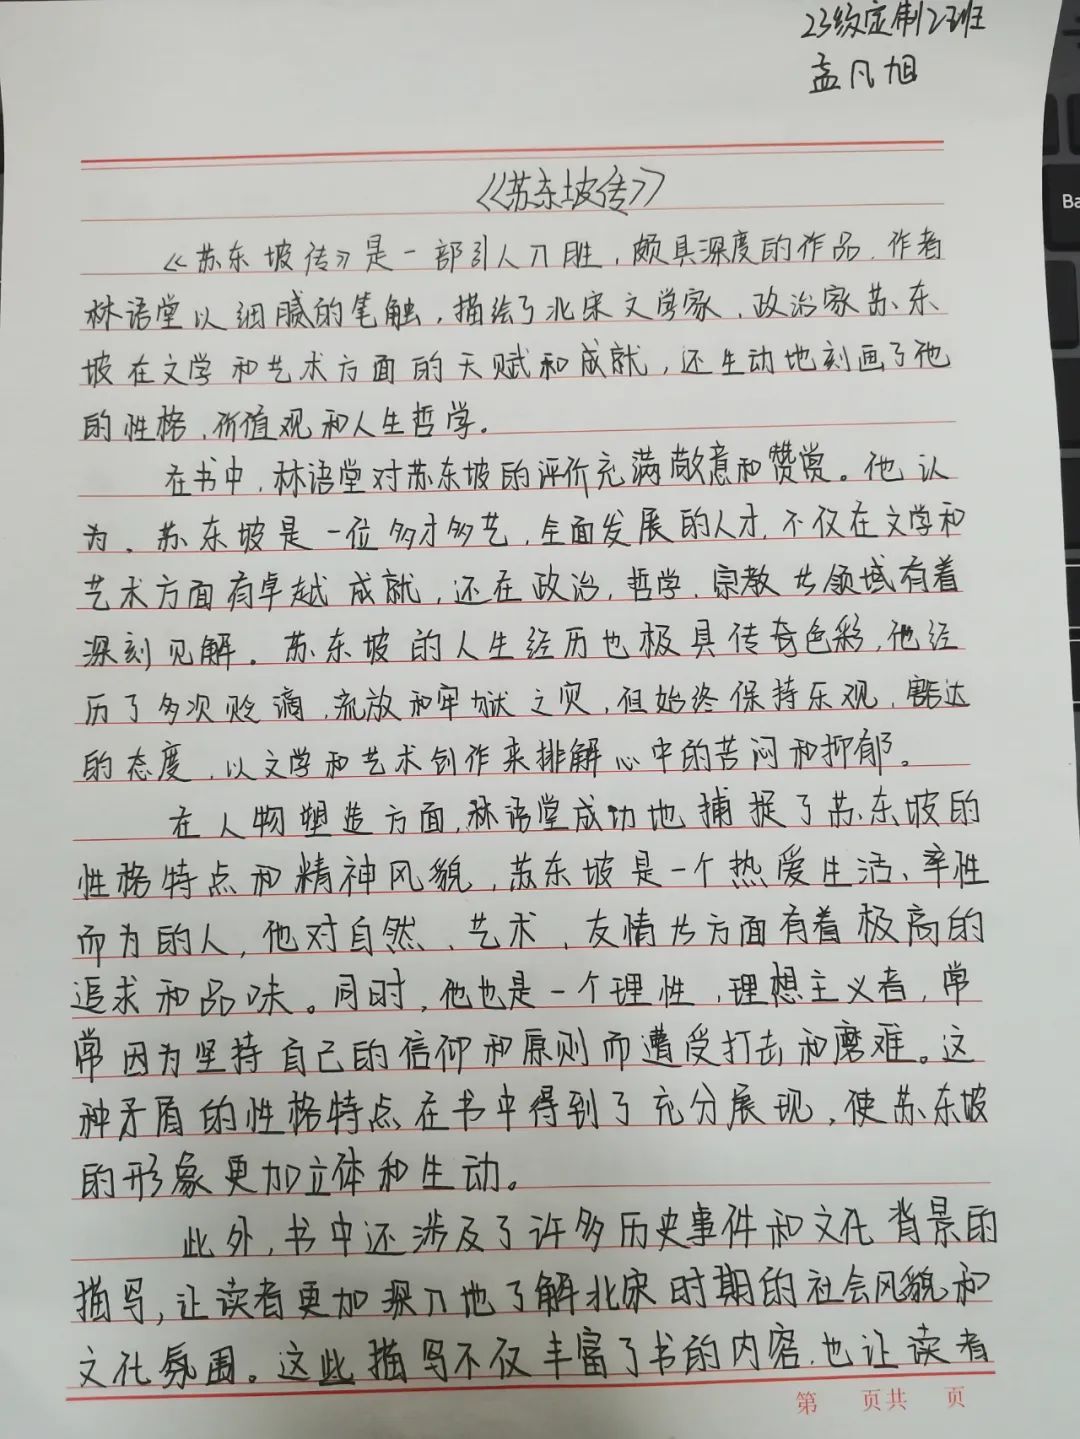 23级定制2班
孟凡旭
《苏东坡传》
《苏东坡传》是一部引人入胜，颇具深度的作品．作者
林语堂以细腻的笔触，描绘了北宋文学家、政治家苏东
坡在文学和艺术方面的天赋和成就，还生动地刻画了他
的性格、价值观和人生哲学。
在书中，林语堂对苏东坡的评价充满敬意和赞赏。他认
为，苏东坡是一位多才多艺，全面发展的人才，不仅在文学和
艺术方面有卓越成就，还在政治，哲学、宗教等领域有着
深刻见解。苏东坡的人生经历也极具传奇色彩，他经
历了多次贬滴，流放和牢狱之灾，但始终保持乐观，豁达
的态度，以文学和艺术创作来排解心中的苦闷和抑郁。
在人物塑造方面，林语堂成功地捕捉了苏东坡的
性格特点和精神风貌，苏东坡是一个热爱生活、率性
而为的人，他对自然、艺术、友情等方面有着极高的
追求和品味。同时，他也是一个理性，理想主义者，常
常因为坚持自己的信仰和原则而遭受打击和磨难。这
种矛盾的性格特点在书中得到了充分展现，使苏东坡
的形象更加立体和生动。
此外，书中还涉及了许多历史事件和文化背景的
描写，让读者更加深入地了解北宋时期的社会风貌和
文化氛围。这些描写不仅丰富了书的内容，也让读者
第 页共 页
Ba